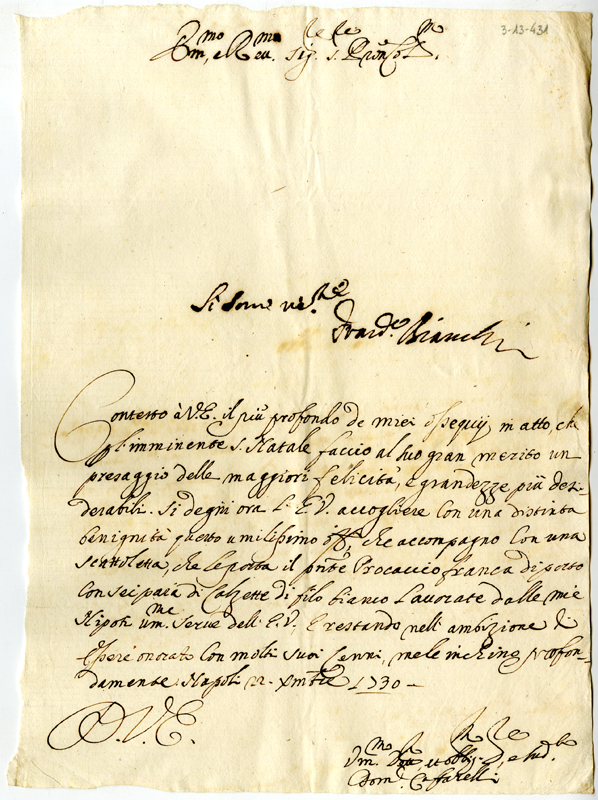 3-13-431
Sig.
Bianchi
Contesto à V.E. il più profondo de miei ossequij in atto, che
gl'imminente S. Natale faccio al suo gran merito un
presaggio delle maggiori felicità, e grandezze più desi-
derabili. Si degni ora l'E.V. accogliere con una distinta
benignità questo umilissimo che accompagno con una
scattoletta, che le porta il pnte Procaccio franca di porto
con sei paia di Calzette di filo bianco lavorate dalle mie
Nipoti um.me serve dell'E.V., e restando nell'ambizione di
esser onorato con molti suoi cenni, me le inchino profon-
damente Napoli 22 Xmbre 1730 -
D.V.E.
Dom. Caffarelli